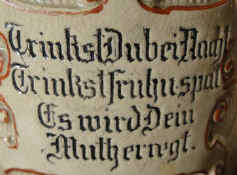 Trinkst Du bei Nacht
Trinkst fruh u spat
Es wird Dein
Muth erregt.